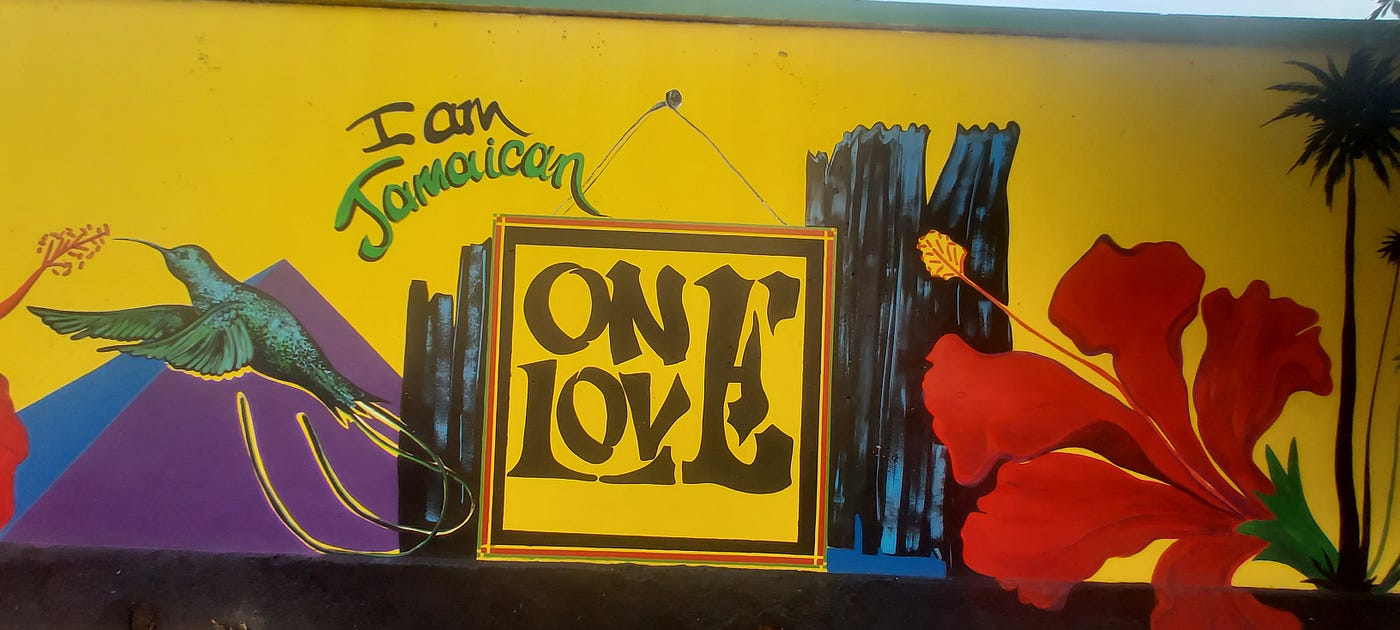 I am
Jamaican
ONE
LOVE